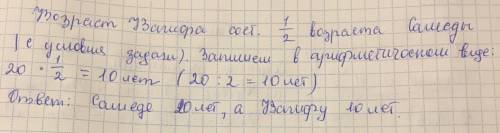 Возраст Вагифа сост. 1/2 возраста Самеды
(с условия задачи). Запишем в арифметическом виде:
20 · 1/2 = 10 лет (20 : 2 = 10 лет)
Ответ: Самеде 20 лет, а Вагифу 10 лет.